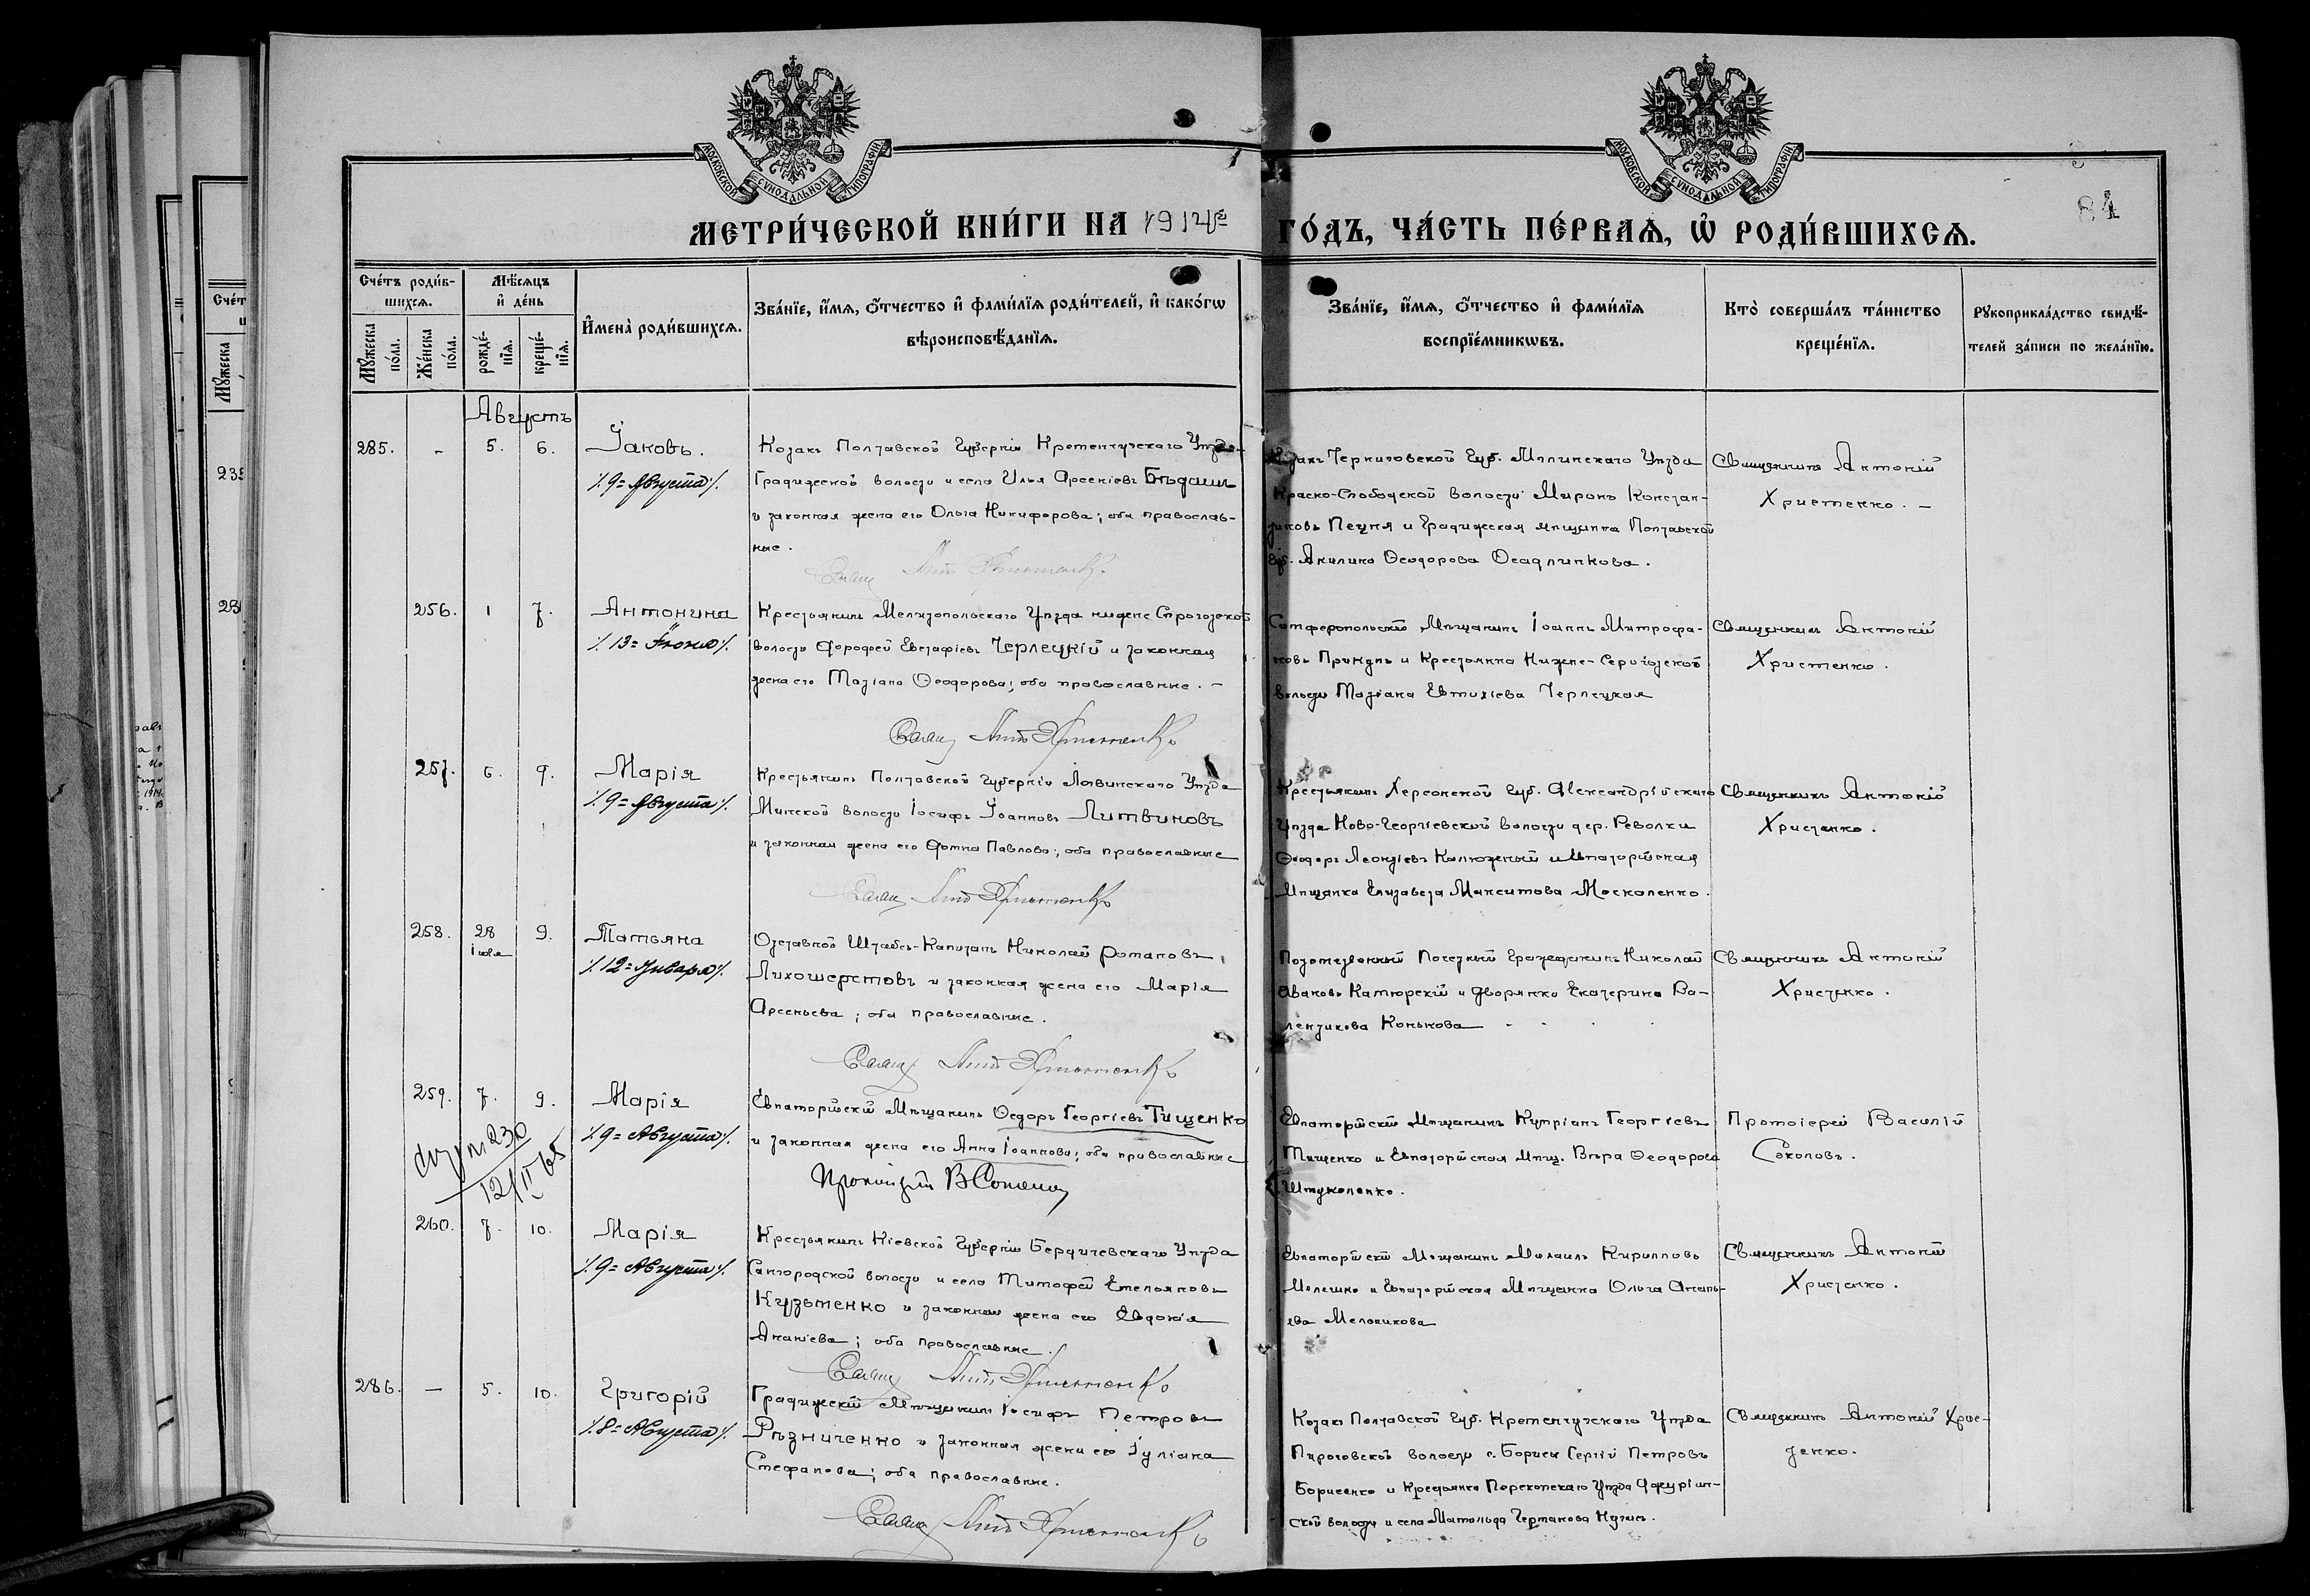 МОСКОВСКОЙ СѴНОДАЛЬНОЙ ТИПОГРАФІИ
МОСКОВСКОЙ СѴНОДАЛЬНОЙ ТИПОГРАФІИ
84
МЕТРИ́ЧЕСКОЙ КНИ́ГИ НА 1914й
ГО́ДЪ, ЧА́СТЬ ПЕ́РВАѦ, Ѡ҆ РОДИ́ВШИХСѦ.
Сче́тъ роди́в-
шихсѧ.
Мѣ́сѧцъ
и҆ де́нь
Мꙋ́жеска
по́ла.
Же́нска
по́ла.
рожде́-
нїѧ.
креще́-
нїѧ.
И҆мена̀ роди́вшихсѧ.
Зва́нїе, и҆́мѧ, о҆́тчество и҆ фами́лїѧ роди́телей, и҆ како́гѡ
вѣроисповѣ́данїѧ.
Зва́нїе, и҆́мѧ, о҆́тчество и҆ фами́лїѧ
воспрїе́мникѡвъ.
Кто̀ соверша́лъ та́инство
креще́нїѧ.
Рꙋкоприкла́дство свидѣ́-
телей за́писи по жела́нїю.
Августъ
285. - 5. 6. Іаковъ.
/9= Августа/.
Козакъ Полтавской Губерніи Кременчугскаго Уѣзда
Градижской волости и села Илья Арсеніевъ
и законная жена его Ольга Никифорова; оба православ-
ные.
Козакъ Черниговской Губ. Мглинскаго Уѣзда
Красно-Слободской волости Миронъ Констан-
тиновъ Пецня и Градижская мѣщанка Полтавской
Губ. Акилина Ѳеодорова Осадчикова.
Священникъ Антоній
Христенко. -
Свящ Ант Христенко
256. 1 7. Антонина
/13= Іюня/.
Крестьянинъ Мелитопольскаго Уѣзда нижне Сѣрогозской
волости Дорофей Евстафіевъ Черлецкій и законная
жена его Татіана Ѳеодорова; оба православные. -
Симферопольскій Мѣщанинъ Іоаннъ Митрофа-
новъ и Крестьянка Нижне-Серогозской
волости Татіана Евтихіева Черлецкая
Священникъ Антоній
Христенко.
Свящ Ант Христенко
257. 6. 9. Марія
/9= Августа/.
Крестьянинъ Полтавской Губерніи Уѣзда
волости Іосифъ Іоанновъ Литвиновъ
и законная жена его Домна Павлова; оба православные
Крестьянинъ Херсонской Губ. Александрійскаго
Уѣзда Ново-Георгіевской волости дер. Револки
Ѳеодоръ Леонтіевъ Калюжный и Евпаторійская
Мѣщанка Елизавета Максимова Москаленко.
Священникъ Антоній
Христенко.
Свящ Ант Христенко
258. 28 9. Татьяна
Іюля
/12= Января/.
Отставной Штабсъ-Капитанъ Николай Романовъ
Лихошерстовъ и законная жена его Марія
Арсеньева; оба православные.
Потомственный Почетный Гражданинъ Николай
Ивановъ и Дворянка Екатерина Ва-
лентинова Конькова
Священникъ Антоній
Христенко.
Свящ Ант Христенко
259. 7. 9. Марія
/9= Августа/.
Евпаторійскій Мѣщанинъ Ѳедоръ Георгіевъ Тищенко
и законная жена его Анна Іоаннова; оба православные
Евпаторійскій Мѣщанинъ Кипріанъ Георгіевъ
Тищенко и Евпаторійская Мѣщ. Вѣра Ѳеодорова
Штукаленко.
Протоіерей Василій
Соколовъ.
Протоіерей В Соколовъ
12/II 65
260. 7. 10. Марія
/9= Августа/.
Крестьянинъ Кіевской Губерніи Бердичевскаго Уѣзда
Самгородской волости и села Тимофей Емельяновъ
Кузьменко и законная жена его Евдокія
Ананіева; оба православные.
Евпаторійскій Мѣщанинъ Михаилъ Кирилловъ
Мелешко и Евпаторійская Мѣщанка Ольга Онань-
ева Меловикова
Священникъ Антоній
Христенко.
Свящ Ант Христенко
286. — 5. 10. Григорій
/8= Августа/.
Градижскій Мѣщанинъ Іосифъ Петровъ
Рѣзниченко и законная жена его Іуліана
Стефанова; оба православные.
Козакъ Полтавской Губ. Кременчугскаго Уѣзда
Пироговской волости с. Борисы Сергій Петровъ
Борисенко и Крестьянка Перекопскаго Уѣзда
ской волости и села Матильда Германова
Священникъ Антоній Хрис-
тенко.
Свящ Ант Христенко